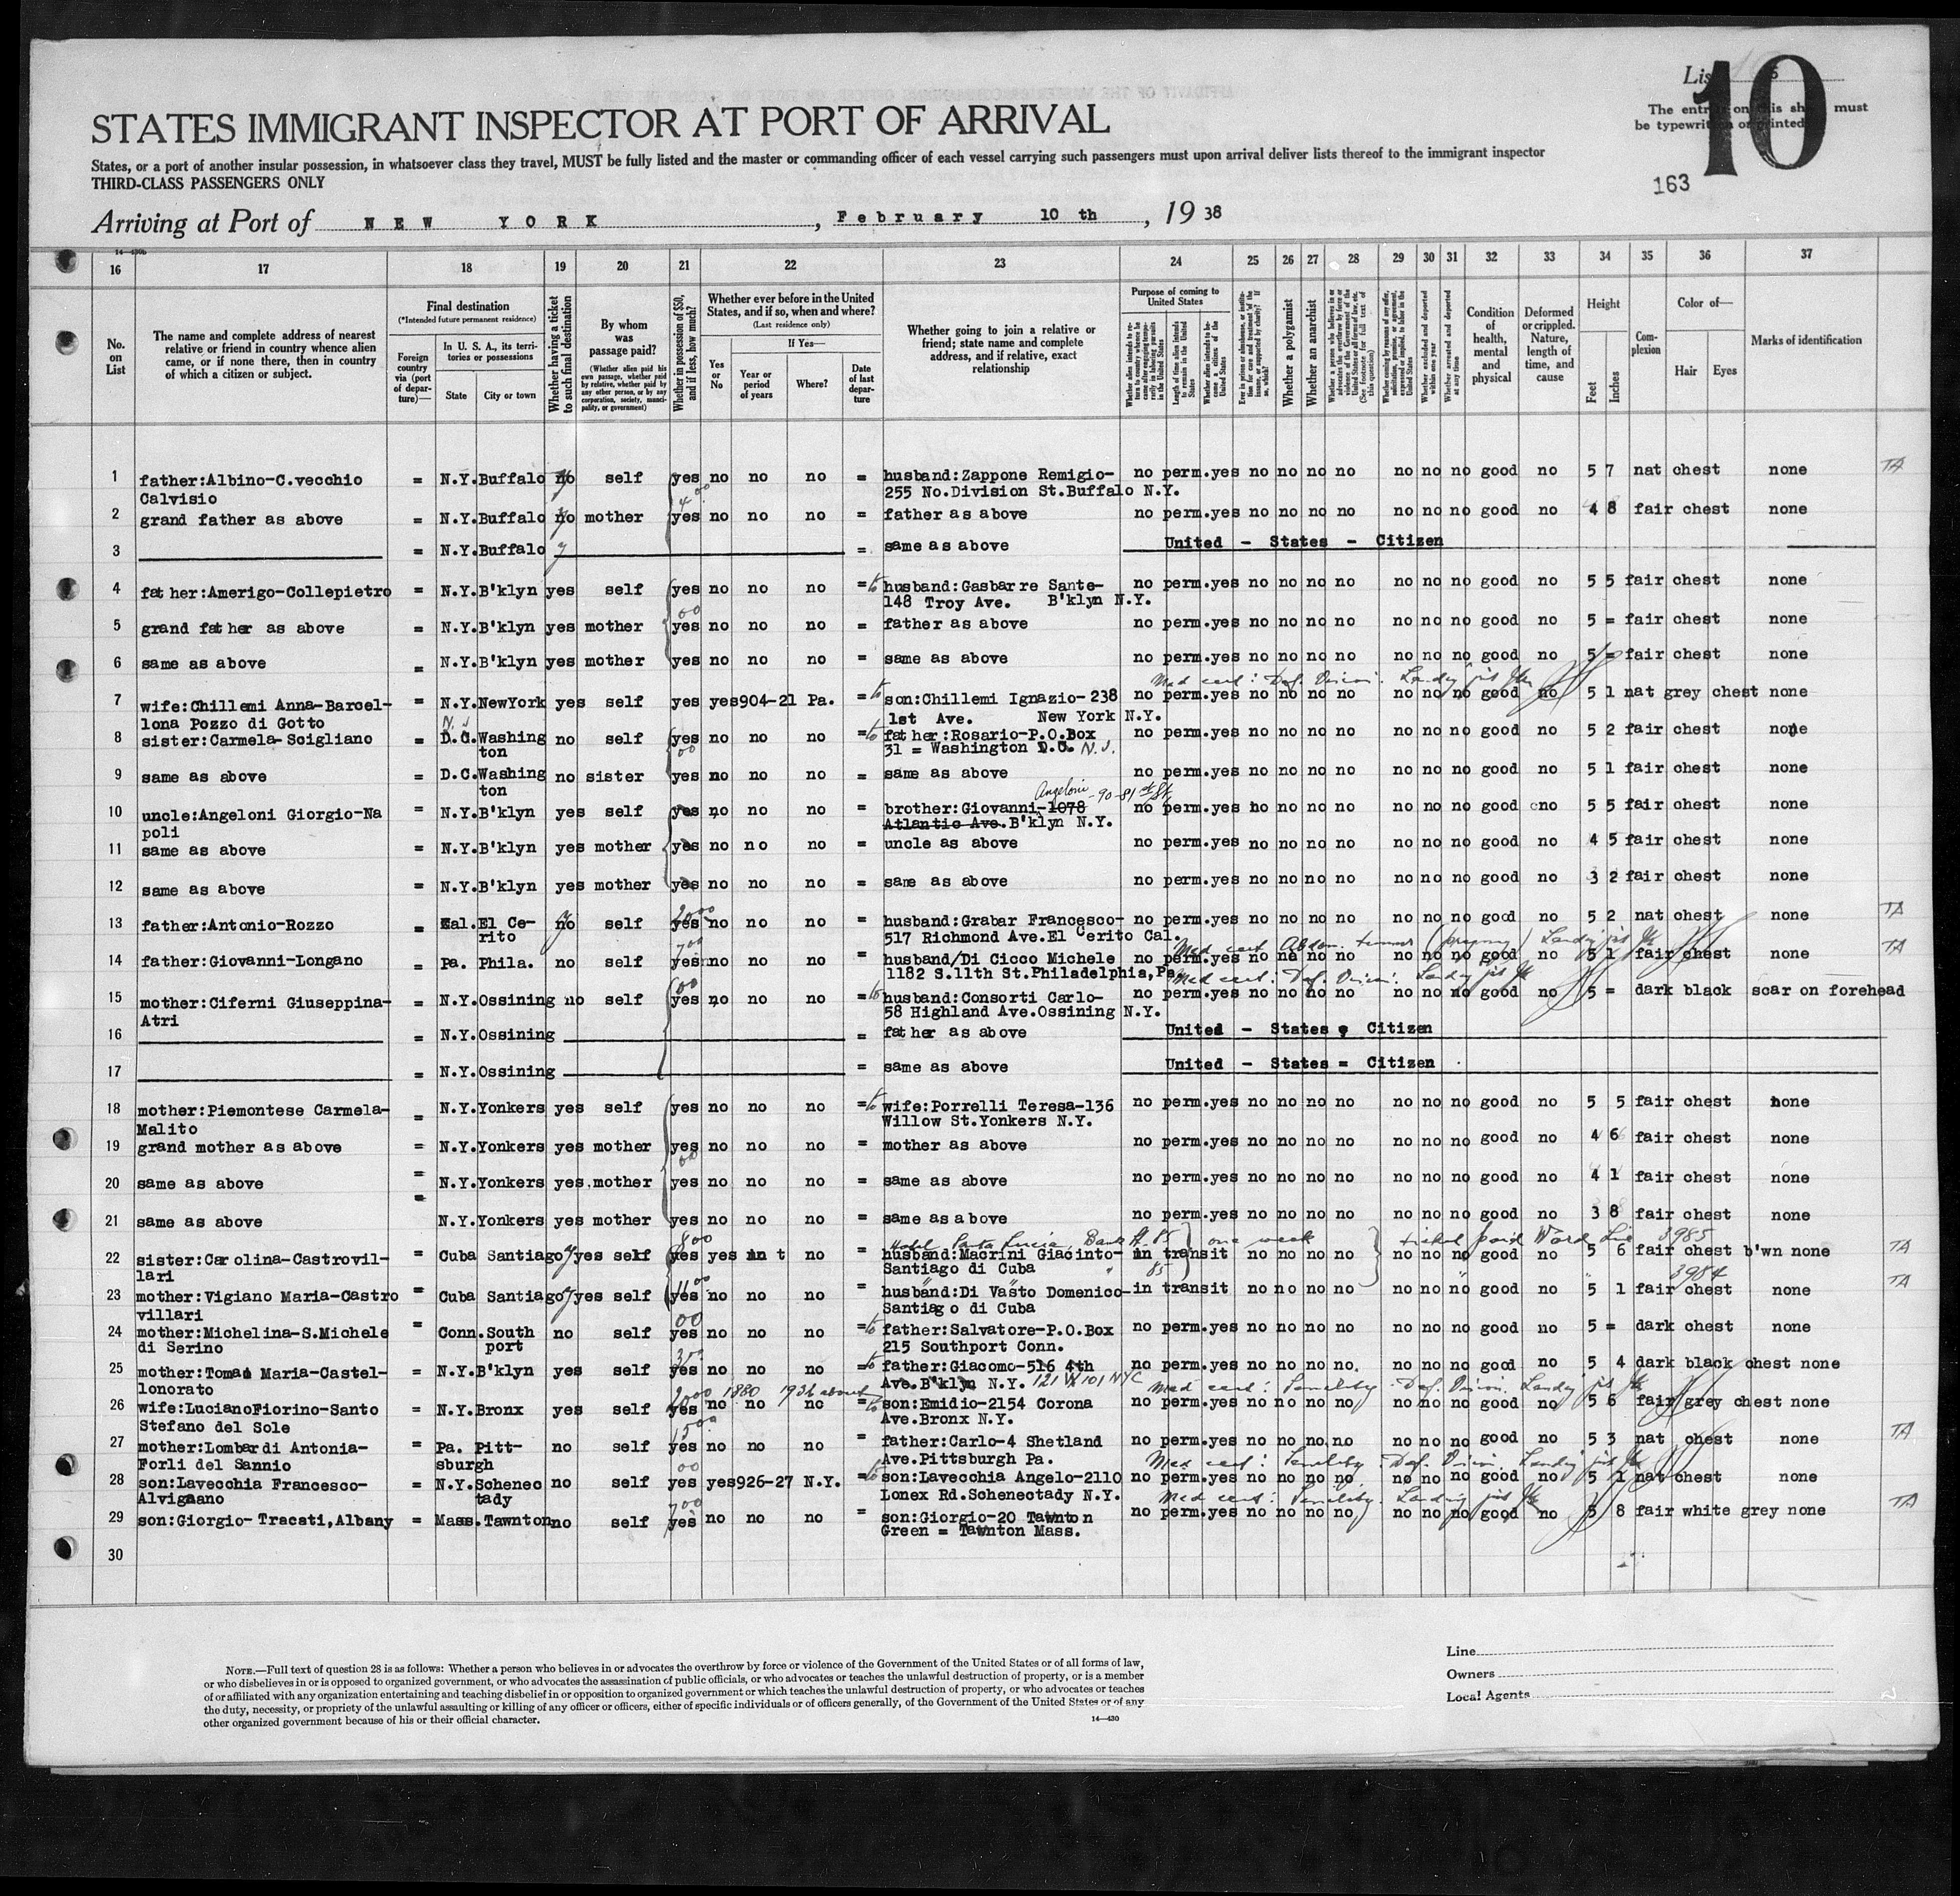 List 5
10
The entries on this sheet must
be typewritten or printed
163
STATES IMMIGRANT INSPECTOR AT PORT OF ARRIVAL
States, or a port of another insular possession, in whatsoever class they travel, MUST be fully listed and the master or commanding officer of each vessel carrying such passengers must upon arrival deliver lists thereof to the immigrant inspector
THIRD-CLASS PASSENGERS ONLY
Arriving at Port of NEW YORK, February 10 th, 19 38
16 17 18 19 20 21 22 23 24 25 26 27 28 29 30 31 32 33 34 35 36 37
No. on List
The name and complete address of nearest relative or friend in country whence alien came, or if none there, then in country of which a citizen or subject.
Final destination
(*Intended future permanent residence)
Foreign country via (port of departure)—
In U. S. A., its territories or possessions
State
City or town
Whether having a ticket to such final destination
By whom was passage paid?
(Whether alien paid his own passage, whether paid by relative, whether paid by any other person, or by any corporation, society, municipality, or government)
Whether in possession of $50, and if less, how much?
Whether ever before in the United States, and if so, when and where?
(Last residence only)
Yes or No
If Yes—
Year or period of years
Where?
Date of last departure
Whether going to join a relative or friend; state name and complete address, and if relative, exact relationship
Purpose of coming to United States
Length of time alien intends to remain in the United States
Whether alien intends to become a citizen of the United States
Whether a polygamist
Whether an anarchist
Whether excluded and deported within one year
Whether arrested and deported at any time
Condition of health, mental and physical
Deformed or crippled. Nature, length of time, and cause
Height
Feet
Inches
Complexion
Color of—
Hair
Eyes
Marks of identification
1 father:Albino-C.vecchio = N.Y. Buffalo no self yes no no no = husband:Zappone Remigio- no perm.yes no no no no no no no good no 5 7 nat chest none TA
Calvisio 255 No.Division St.Buffalo N.Y.
2 grand father as above = N.Y. Buffalo no mother yes no no no = father as above no perm.yes no no no no no no no good no 4 8 fair chest none
3 = N.Y. Buffalo = same as above United - States - Citizen
4 father:Amerigo-Collepietro = N.Y. B'klyn yes self yes no no no = to husband:Gasbarre Sante- no perm.yes no no no no no no no good no 5 5 fair chest none
148 Troy Ave. B'klyn N.Y.
5 grand father as above = N.Y. B'klyn yes mother yes no no no = father as above no perm.yes no no no no no no no good no 5 = fair chest none
6 same as above = N.Y. B'klyn yes mother yes no no no = same as above no perm.yes no no no no no no no good no 5 = fair chest none
Med cert: Def. Vision.
7 wife:Chillemi Anna-Barcel- = N.Y. NewYork yes self yes yes 904-21 Pa. = to son:Chillemi Ignazio-238 no perm.yes no no no no no no no good no 5 1 nat grey chest none
lona Pozzo di Gotto 1st Ave. New York N.Y.
8 sister:Carmela-Scigliano = N.J. D.C. Washing no self yes no no no = to father:Rosario-P.O.Box no perm.yes no no no no no no no good no 5 2 fair chest none
ton 31 = Washington D.C. N.J.
9 same as above = D.C. Washing no sister yes no no no = same as above no perm.yes no no no no no no no good no 5 1 fair chest none
ton Angeloni -90-81st St.
10 uncle:Angeloni Giorgio-Na = N.Y. B'klyn yes self yes no no no = brother:Giovanni-1078 no perm.yes no no no no no no no good no 5 5 fair chest none
poli Atlantic Ave.B'klyn N.Y.
11 same as above = N.Y. B'klyn yes mother yes no no no = uncle as above no perm.yes no no no no no no no good no 4 5 fair chest none
12 same as above = N.Y. B'klyn yes mother yes no no no = same as above no perm.yes no no no no no no no good no 3 2 fair chest none
13 father:Antonio-Rozzo = Cal. El Ce- no self yes no no no = husband:Grabar Francesco- no perm.yes no no no no no no no good no 5 2 nat chest none TA
rito 517 Richmond Ave.El Cerito Cal.
14 father:Giovanni-Longano = Pa. Phila. no self yes no no no = husband/Di Cicco Michele no perm.yes no no no no no no no good no 5 1 fair chest none TA
1182 S.11th St.Philadelphia,Pa Med cert. Def. Vision.
15 mother:Ciferni Giuseppina- = N.Y. Ossining no self yes no no no = to husband:Consorti Carlo- no perm.yes no no no no no no no good no 5 = dark black scar on forehead
Atri 58 Highland Ave.Ossining N.Y.
16 = N.Y. Ossining = father as above United - States = Citizen
17 = N.Y. Ossining = same as above United - States = Citizen
18 mother:Piemontese Carmela- = N.Y. Yonkers yes self yes no no no = to wife:Porrelli Teresa-136 no perm.yes no no no no no no no good no 5 5 fair chest none
Malito Willow St.Yonkers N.Y.
19 grand mother as above = N.Y. Yonkers yes mother yes no no no = mother as above no perm.yes no no no no no no no good no 4 6 fair chest none
20 same as above = N.Y. Yonkers yes mother yes no no no = same as above no perm.yes no no no no no no no good no 4 1 fair chest none
21 same as above = N.Y. Yonkers yes mother yes no no no = same as above no perm.yes no no no no no no no good no 3 8 fair chest none
Hotel Santa Lucia, one week ticket paid Ward Line 3985
22 sister:Carolina-Castrovil- = Cuba Santiago yes self yes yes in t no = husband:Macrini Giacinto- in transit no no no no no no no good no 5 6 fair chest b'wn none TA
lari Santiago di Cuba 3984
23 mother:Vigiano Maria-Castro = Cuba Santiago yes self yes no no no = husband:Di Vasto Domenico- in transit no no no no no no no good no 5 1 fair chest none TA
villari Santiago di Cuba
24 mother:Michelina-S.Michele = Conn. South no self yes no no no = to father:Salvatore-P.O.Box no perm.yes no no no no no no no good no 5 = dark chest none
di Serino port 215 Southport Conn.
25 mother:Tomai Maria-Castel- = N.Y. B'klyn yes self yes no no no = to father:Giacomo-516 4th no perm.yes no no no no no no no good no 5 4 dark black chest none
lonorato Ave.B'klyn N.Y. 121 W 101 NYC
1880 1936 about Med cert: Senility. Def. Vision.
26 wife:LucianoFiorino-Santo = N.Y. Bronx yes self yes no no no = to son:Emidio-2154 Corona no perm.yes no no no no no no no good no 5 6 fair grey chest none
Stefano del Sole Ave.Bronx N.Y.
27 mother:Lombardi Antonia- = Pa. Pitt- no self yes no no no = father:Carlo-4 Shetland no perm.yes no no no no no no no good no 5 3 nat chest none TA
Forli del Sannio sburgh Ave.Pittsburgh Pa. Med cert: Senility. Def. Vision.
28 son:Lavecchia Francesco- = N.Y. Schenec no self yes yes 926-27 N.Y. = to son:Lavecchia Angelo-2110 no perm.yes no no no no no no no good no 5 1 nat chest none
Alvignano tady Lonex Rd.Schenectady N.Y. Med cert: Senility.
29 son:Giorgio-Tracati,Albany = Mass. Tawnton no self yes no no no = son:Giorgio-20 Tawnton no perm.yes no no no no no no no good no 5 8 fair white grey none TA
Green = Tawnton Mass.
30
Line
Owners
Local Agents
NOTE.—Full text of question 28 is as follows: Whether a person who believes in or advocates the overthrow by force or violence of the Government of the United States or of all forms of law,
or who disbelieves in or is opposed to organized government, or who advocates the assassination of public officials, or who advocates or teaches the unlawful destruction of property, or is a member
of or affiliated with any organization entertaining and teaching disbelief in or opposition to organized government or which teaches the unlawful destruction of property, or who advocates or teaches
the duty, necessity, or propriety of the unlawful assaulting or killing of any officer or officers, either of specific individuals or of officers generally, of the Government of the United States or of any
other organized government because of his or their official character.
14—430